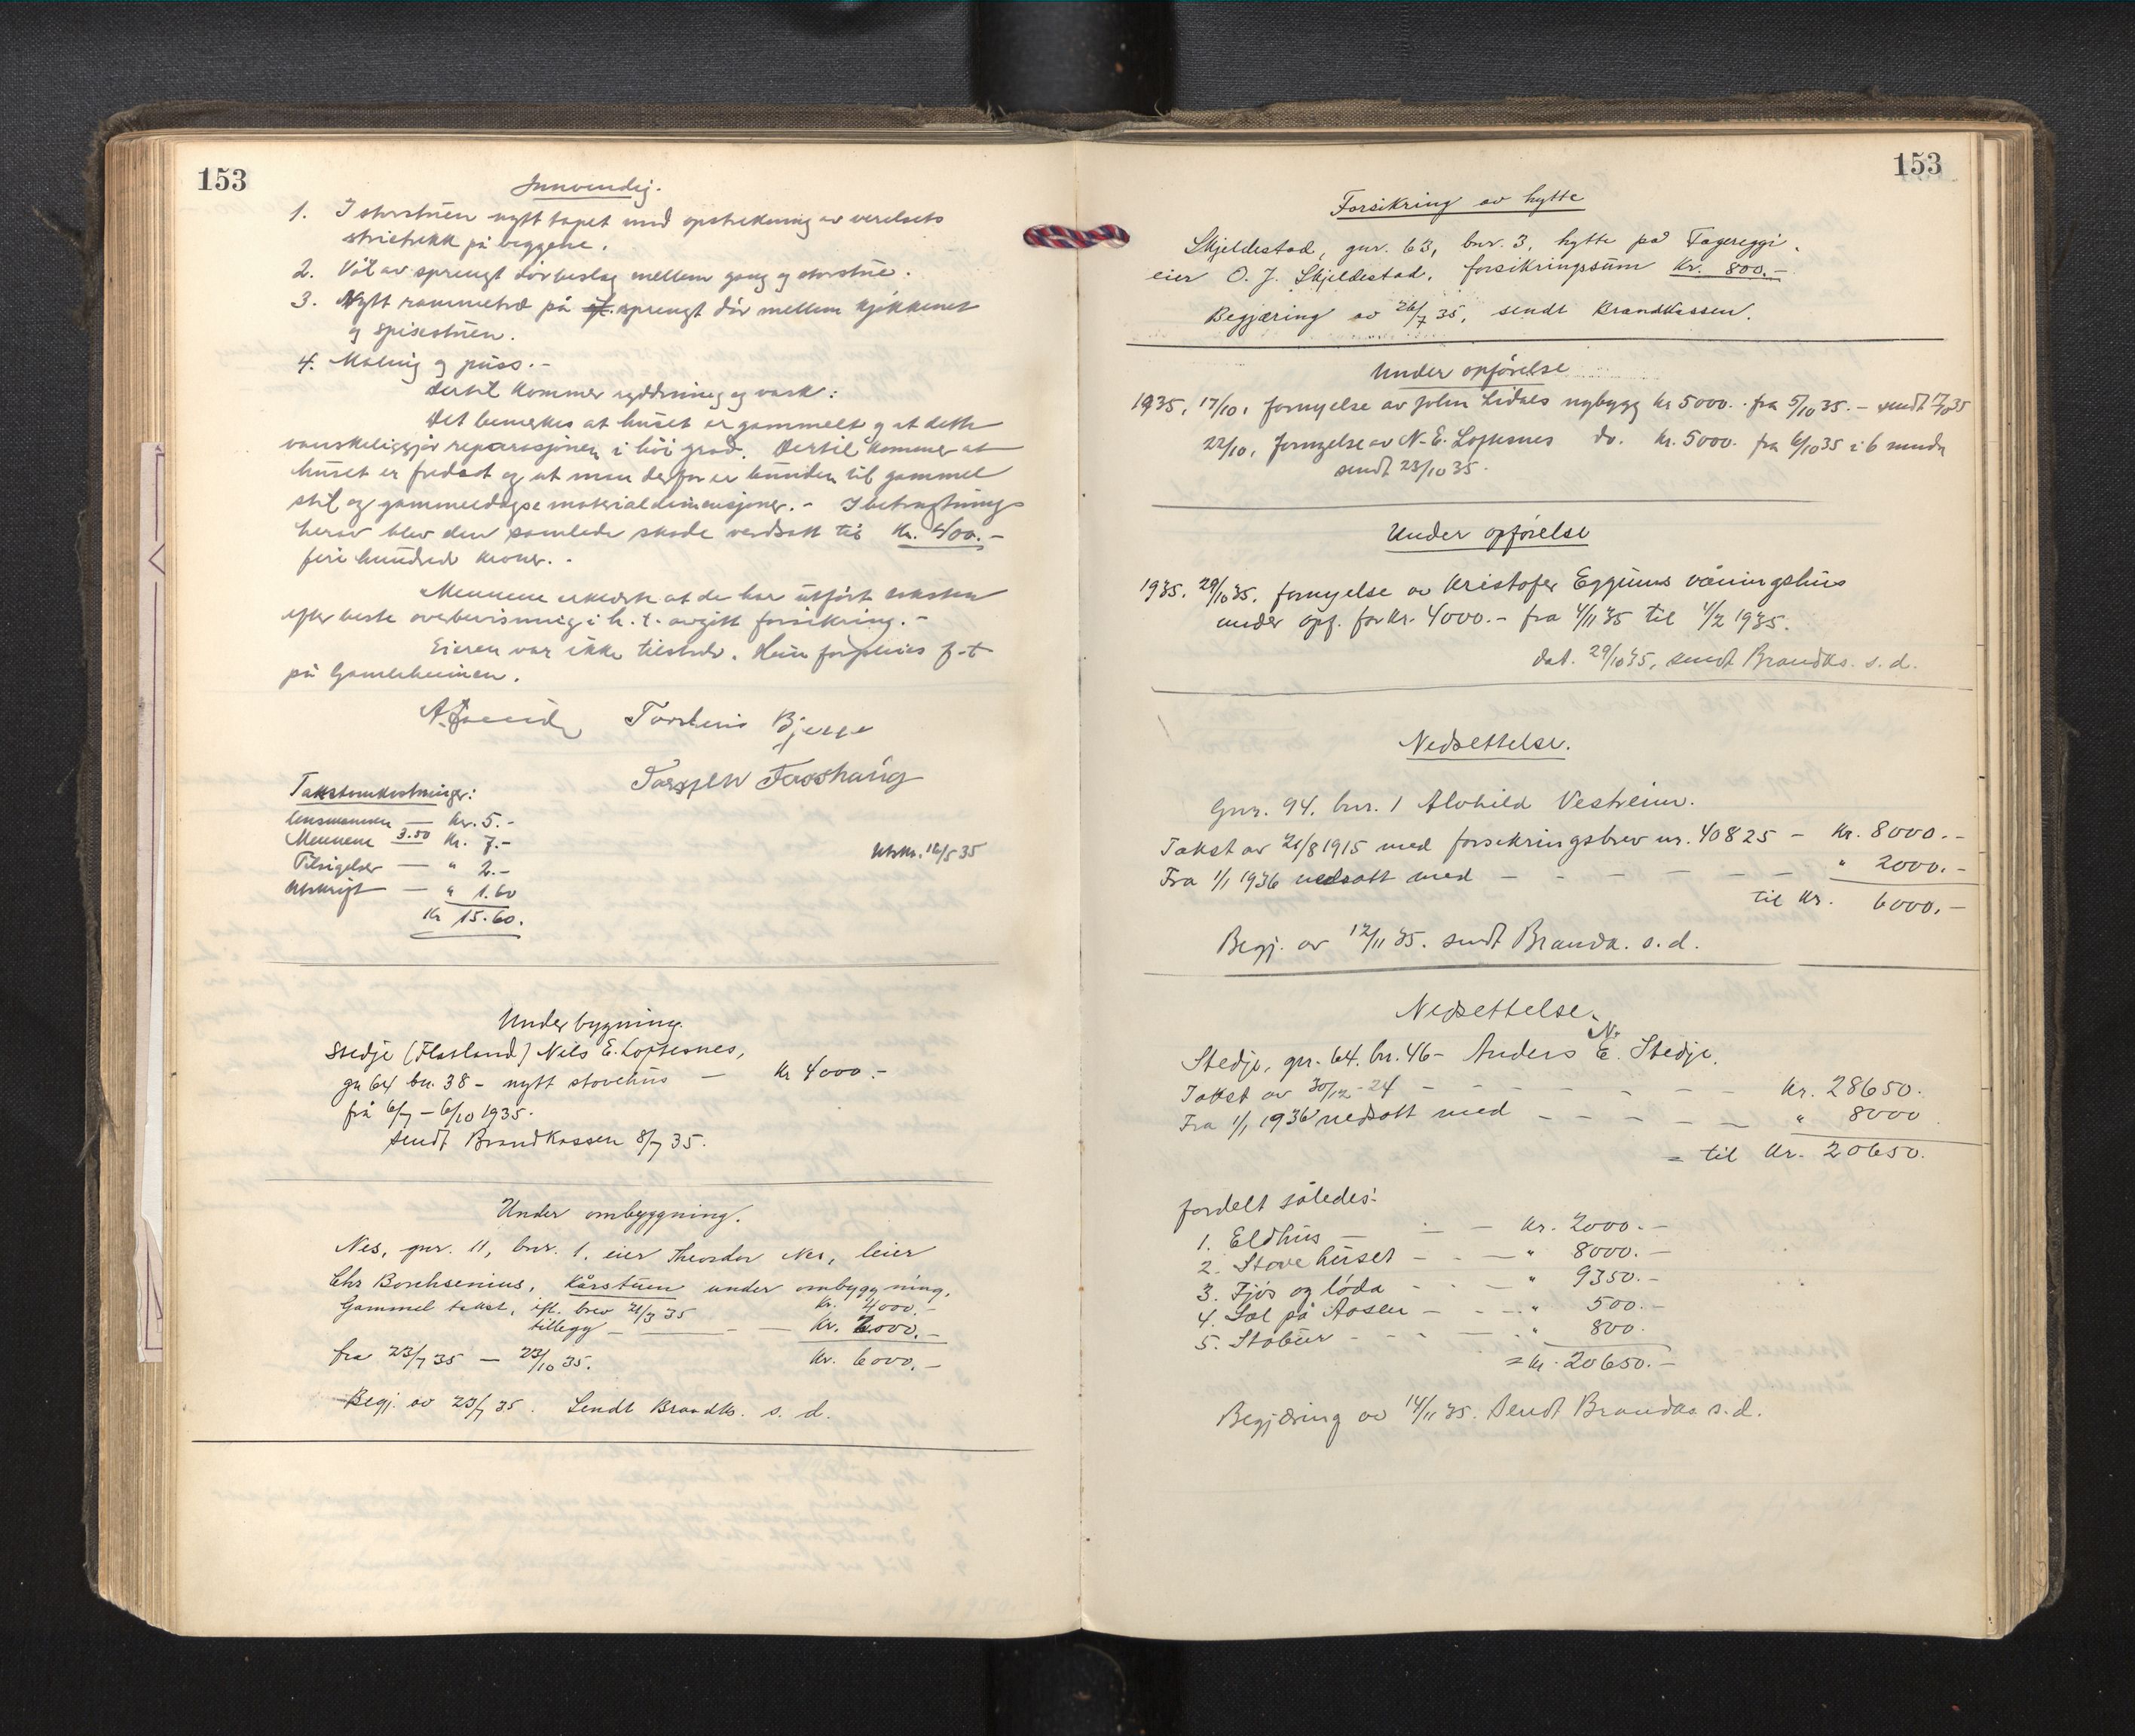 153
Innvendig.
1. I storstuen nytt tapet med opstrekning av verelsets
strietrekk på veggene.
2. Vøl av sprengt dørbeslag mellem gang og storstue.
3. Nytt rammetre på sprengt dør mellem kjøkkenet
og spisestuen.
4. Maling og puss.-
Dertil kommer rydning og vask:
Det bemerkes at huset er gammelt og at dette
vanskeliggjør reparasjonen i høi grad. Dertil kommer at
huset er fredet og at man derfor er bunden til gammel
stil og gammeldagse materialdimensjoner.- I betragtning
herav blev den samlede skade verdsatt til Kr. 400.-
fire hundred kroner.-
Mennene erklærte at de har utført taksten
efter beste overbevisning i h. t. avgitt forsikring.-
Eieren var ikke tilstede. Hun forpleies p.t.
på Gamleheimen.
Torstein Bjerge
Torsten Fosshaug
Takstomkostninger:
Lensmannen — kr. 5.-
Mennene 3.50 Kr. 7.-
Tilsigelser — " 2.-
Utskrift — " 1.60
Kr 15.60.
Utskr. 16/5 35
Under bygning.
Stedje (Flatland) Nils E. Loftesnes,
gn 64 bn. 38 - nytt stovehus — Kr 4000.-
frå 6/7 - 6/10 1935.
Sendt Brandkassen 8/7 35.
Under ombyggning.
Nes, gnr. 11, bnr. 1. eier Theodor Nes, leier
Chr Borchsenius, Kårstuen under ombyggning.
Gammel takst, ifl. brev 21/3 35 Kr. 4000.-
tillegg — Kr. 2000.-
fra 23/7 35 — 23/10 35. Kr. 6000.-
Begj. av 23/7 35. Sendt Brandk. s. d.
153
Forsikring av hytte
Skjeldestad, gnr. 63, bnr. 3, hytte på Fagereggi,
eier O. J. Skjeldestad, forsikringssum Kr. 800.-
Begjæring av 26/7 35, sendt Brandkassen.
Under opførelse
1935. 17/10, fornyelse av John Lidals nybygg kr 5000.- fra 5/10 35. - sendt 17/10 35
22/10, fornyelse av N. E. Loftesnes do. kr. 5000. fra 6/10 35 i 6 mndr
sendt 23/10 35.
Under opførelse
1935. 29/10 35. fornyelse av Kristofer Eggums våningshus
under opf. for kr. 4000.- fra 4/11 35 til 4/2 1935.
dat. 29/10 35, sendt Brandks. s. d.
Nedsettelse.
Gnr. 94. bnr. 1 Alvhild Vestreim.
Takst av 21/8 1915 med forsikringsbrev nr. 40825 - Kr. 8000.-
Fra 1/1 1936 nedsatt med - - - - - - " 2000.-
til Kr. 6000.-
Begj. av 12/11 35. sendt Brandk. s. d.
Nedsettelse.
N.
Stedje, gn. 64. bn. 46 - Anders E. Stedje.
Takst av 30/12 - 24 - - - - - - Kr. 28650.
Fra 1/1 1936 nedsatt med - - - - - " 8000
= til Kr. 20650.
fordelt således:
1. Eldhus — — - Kr. 2000.-
2. Stovehuset - - — " 8000.-
3. Fjøs og løda - - - " 9350.-
4. Sel på Åosen - - - " 500.-
5. Stabur - - - — " 800.
= kr. 20650.-
Begjæring av 14/11 35. Sendt Brandks s. d.